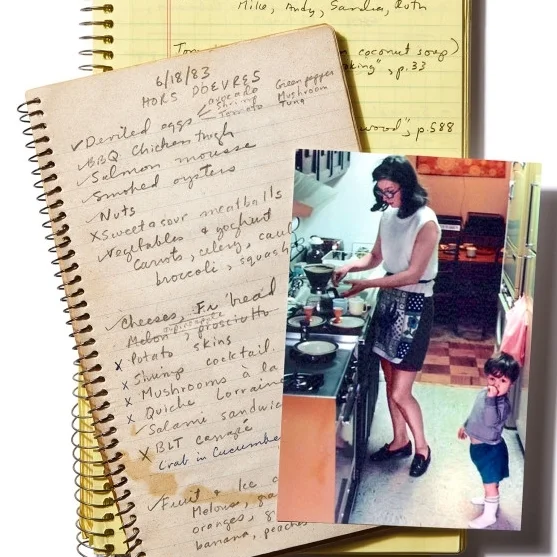 Mike, Andy, Sandra, Ruth
Tom
coconut soup)
king", p.33
wood", p.588
6/18/83
HORS DOEVRES
✓Deviled eggs < avocado
shrimp
Tomato
Green pepper
Mushroom
Tuna
✓BBQ Chicken thigh
✓Salmon mousse
✓Smoked oysters
✓Nuts
XSweet & sour meatballs
✓Vegetables & yoghurt
Carrots, celery, caul
broccoli, squash
✓Cheeses, Fr bread
Melon, prosciutto
X Potato skins
X Shrimp cocktail
X Mushrooms à la
X Quiche Lorraine
✓Salami sandwic
X BLT canapé
Crab in Cucumber
✓Fruit & Ice c
Melons, gra
oranges, g
banana, peaches